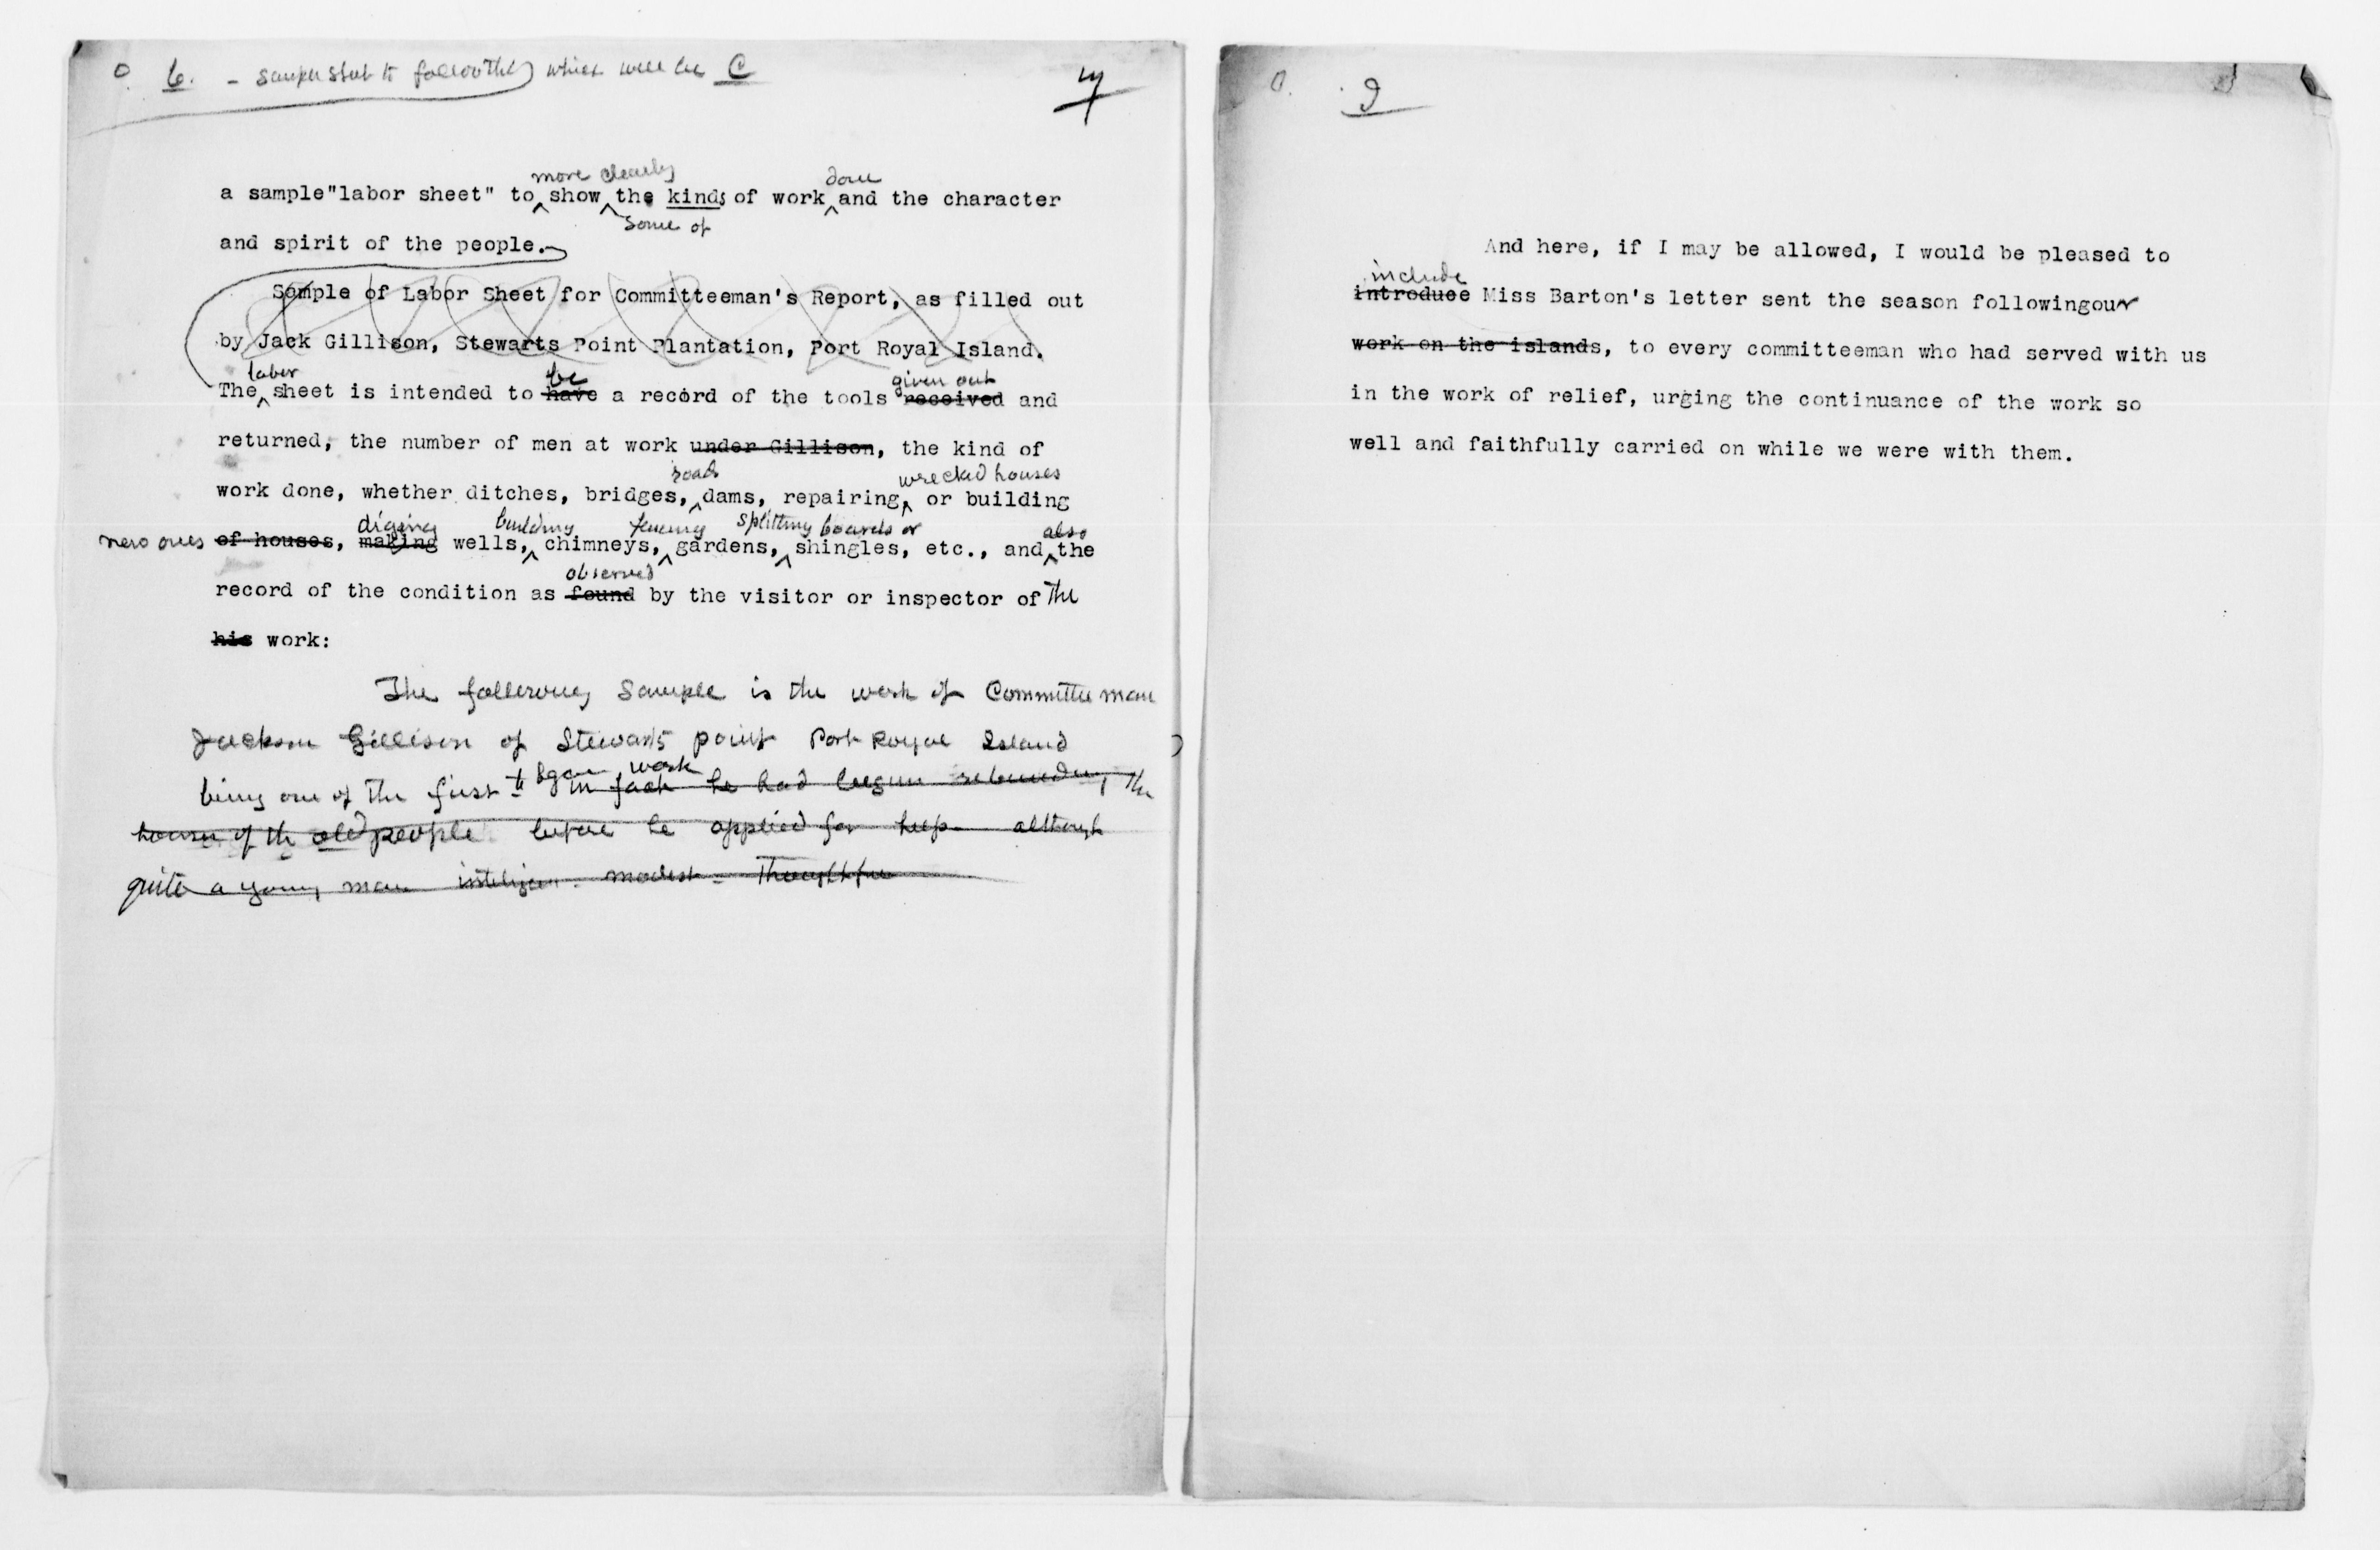 O. b. - sample sheet to follow this which will be C
7
more clearly done
a sample"labor sheet" to show the kinds of work and the character
some of
and spirit of the people.
Sample of Labor Sheet for Committeeman's Report, as filled out
by Jack Gillison, Stewarts Point Plantation, Port Royal Island.
labor be given out
The sheet is intended to have a record of the tools received and
returned, the number of men at work under Gillison, the kind of
roads wrecked houses
work done, whether ditches, bridges, dams, repairing, or building
diging building fencing splitting boards or also
new ones of houses, making wells, chimneys, gardens, shingles, etc., and the
observed
record of the condition as found by the visitor or inspector of the
his work:
The following Sample is the work of Committee man
Jackson Gillison of Stewarts point Port Royal Island
began work
being one of the first to in fact he had begun rebuilding the
houses of the old people before he applied for help although
quite a young man inteligen. modest - Thoughtful
O. D
And here, if I may be allowed, I would be pleased to
include
introduce Miss Barton's letter sent the season followingour
work on the islands, to every committeeman who had served with us
in the work of relief, urging the continuance of the work so
well and faithfully carried on while we were with them.